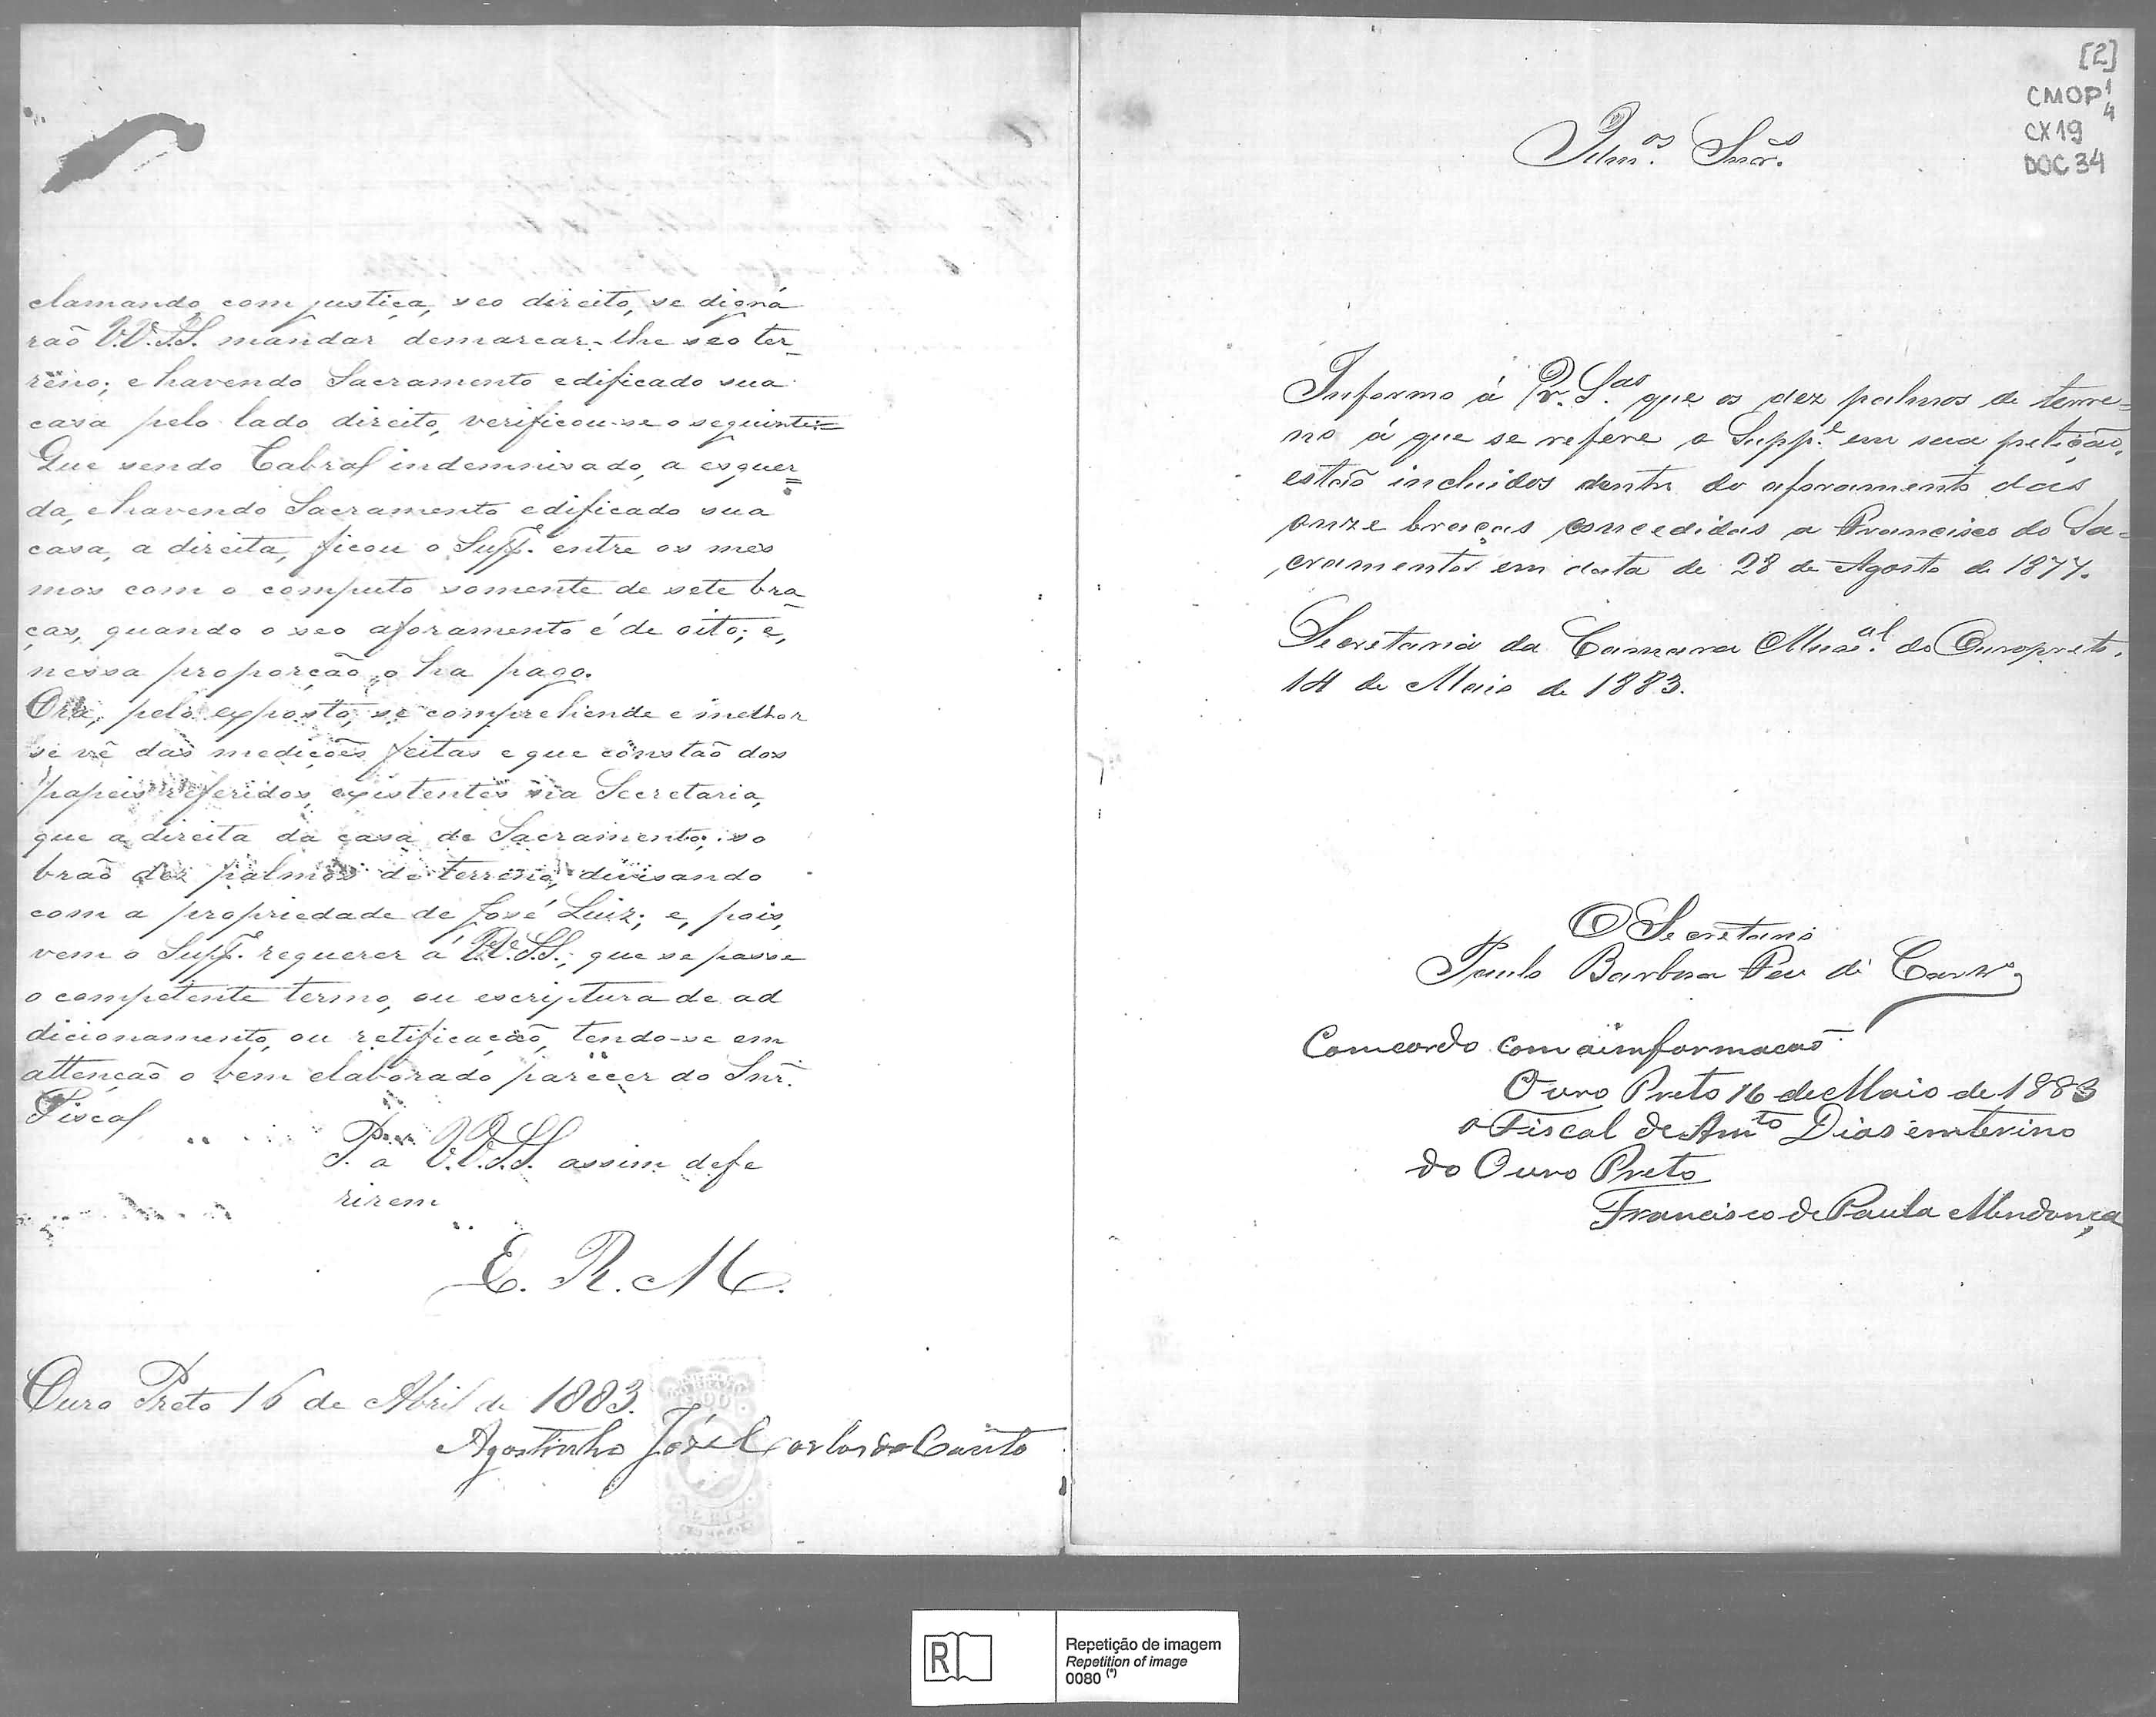 clamando, com justiça, seo direito, se digná
raõ V.V.S.S. mandar demarcar-lhe seo ter
reno; e havendo Sacramento edificado sua
casa pelo lado direito, verificou-se o seguinte:=
Que sendo Cabral indemnisado, a esquer
da, e havendo Sacramento edificado sua
casa, a direita, ficou o Supp.e entre os mes
mos com o computo somente de sete bra
ças, quando o seo aforamento é de oito; e,
nessa proporcão o ha pago.
Ora, pelo exposto, se comprehende e melhor
se vê das medições feitas e que constaõ dos
papeis referidos, existentes na Secretaria,
que a direita da casa de Sacramento, so
braõ dez palmos de terreno, divisando
com a propriedade de José Luiz; e, pois,
vem o Supp.e requerer á V.V.S.S., que se passe
o competente termo, ou escriptura de ad
dicionamento, ou retificacaõ, tendo-se em
attençaõ o bem elaborado parecer do Snr.
Fiscal
P. a V.V.S.S. assim defe
rirem
E. R. M.
Ouro Preto 16 de Abril de 1883.
Agostinho José Carlos do Couto
[2]
CMOP 1/4
CX 19
DOC 34
Illm.os Snr.es
Informo á V. S.as que os dez palmos de terre=
no á que se refere o Supp.e em sua petição,
estaõ incluidos dentro do aforamento das
onze braças concedidas a Francisco do Sa=
cramento em data de 28 de Agosto de 1877.
Secretaria da Camara Mun.al do Ouropreto,
14 de Maio de 1883.
O Secretario
Paulo Barbosa
Comcordo com a imformacaõ.
Ouro Preto 16 de Maio de 1883
o Fiscal de Ant.to Dias emterino
do Ouro Preto
Francisco de Paula Mendonça
R
Repetição de imagem
Repetition of image
0080 (*)